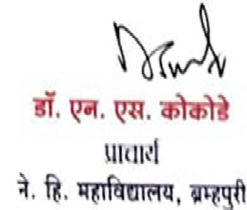 डॉ. एन. एस. कोकोडे
प्राचार्य
ने. हि. महाविद्यालय, ब्रम्हपुरी